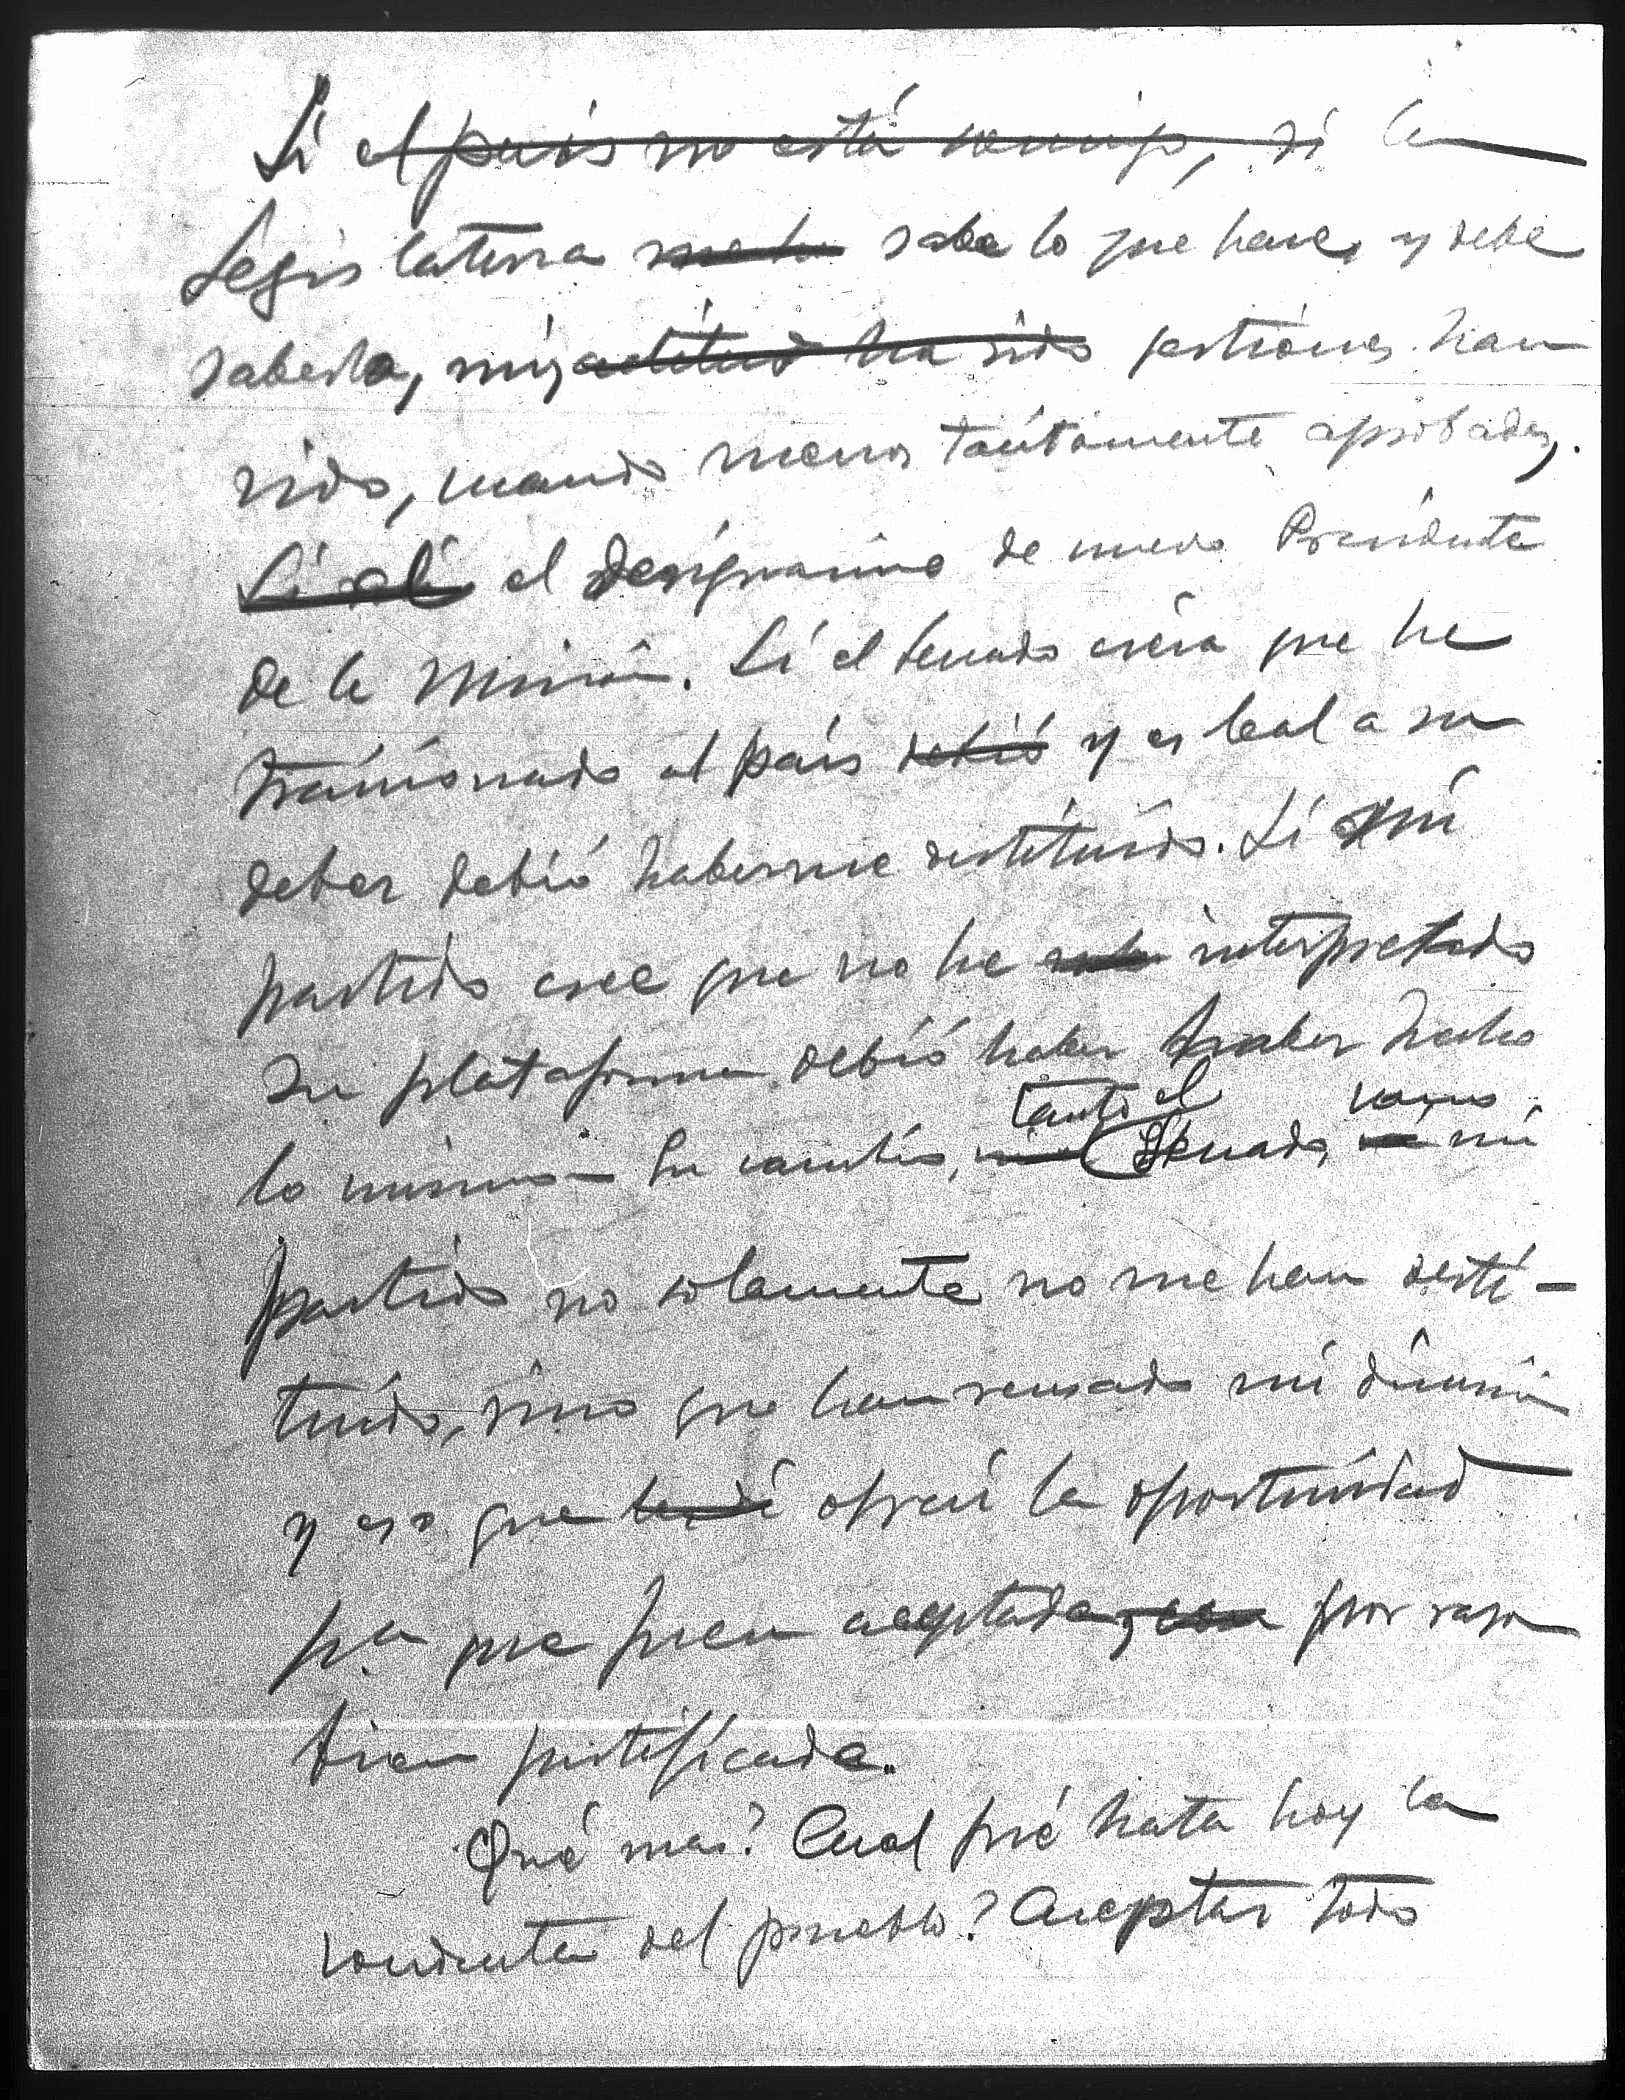 Si el país no está conmigo, si la
Legislatura me ha sabe lo que hace, y debe
saberlo, mis actitud ha sido gestiones han
sido, cuando menos tácitamente aprobadas,.
Si al el designarme de nuevo Presidente
de la Misión. Si el Senado creía que he
traicionado al país debió y es leal a su
deber debió haberme destituído. Si mi
partido cree que no he interpretado
su plataforma debió haber haber hecho
lo mismo. En cambio, tanto el Senado, como mi
partido no solamente no me han desti-
tuído, sino que han rehusado mi dimisión
y eso que le dí ofrecí la oportunidad
pa que fuera aceptada, con por razon
bien justificada.
Qué mas? Cual fué hasta hoy la
conducta del pueblo? Aceptar todo